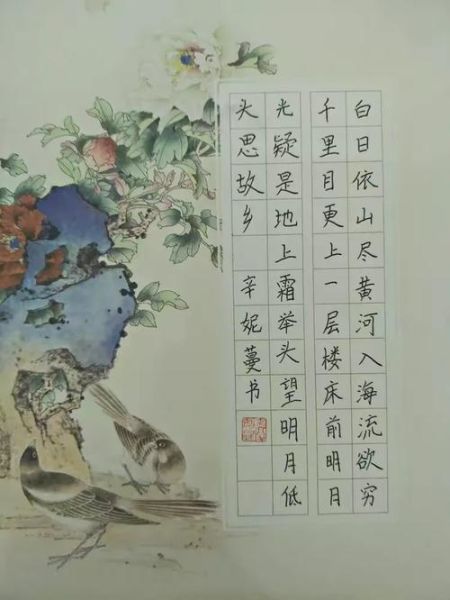 白日依山尽黄河入海流欲穷
千里目更上一层楼床前明月
光疑是地上霜举头望明月低
头思故乡 辛妮蔓书